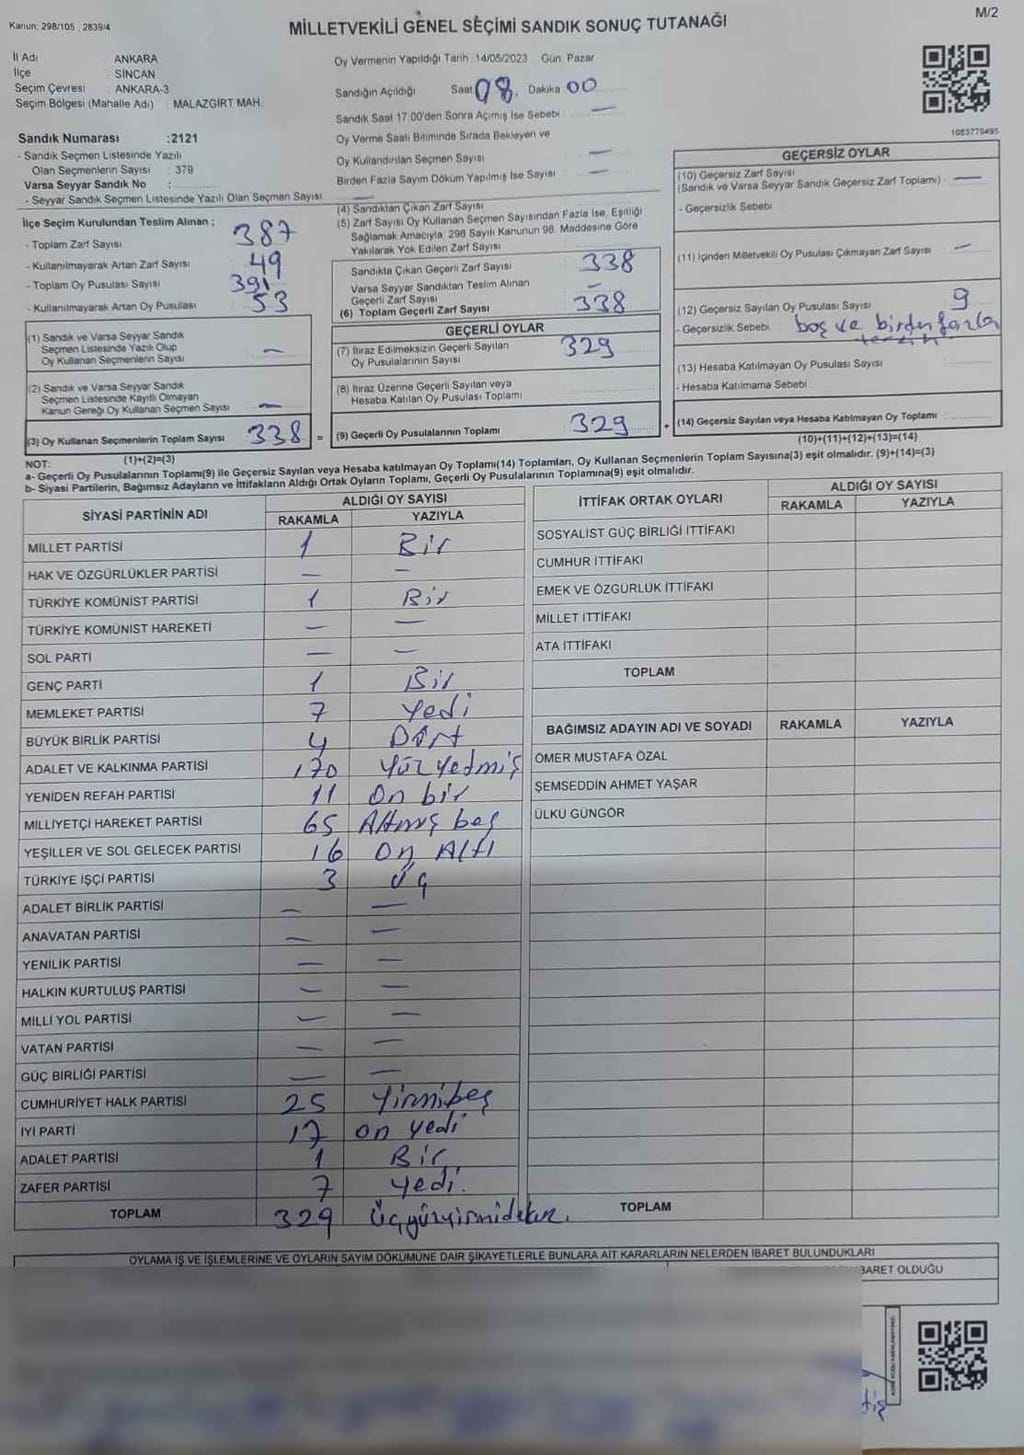 Kanun: 298/105 , 2839/4
MİLLETVEKİLİ GENEL SEÇİMİ SANDIK SONUÇ TUTANAĞI
M/2
İl Adı ANKARA
İlçe SİNCAN
Seçim Çevresi : ANKARA-3
Seçim Bölgesi (Mahalle Adı) : MALAZGİRT MAH.
Sandık Numarası :2121
- Sandık Seçmen Listesinde Yazılı
Olan Seçmenlerin Sayısı : 379
Varsa Seyyar Sandık No :
- Seyyar Sandık Seçmen Listesinde Yazılı Olan Seçmen Sayısı —
Oy Vermenin Yapıldığı Tarih 14/05/2023 Gün: Pazar
Sandığın Açıldığı Saat 08. Dakika 00
Sandık Saat 17.00'den Sonra Açımış İse Sebebi —
Oy Verme Saati Bitiminde Sırada Bekleyen ve
Oy Kullandırılan Seçmen Sayısı —
Birden Fazla Sayım Döküm Yapılmış İse Sayısı —
1083779495
İlçe Seçim Kurulundan Teslim Alınan ;
- Toplam Zarf Sayısı 387
- Kullanılmayarak Artan Zarf Sayısı 49
- Toplam Oy Pusulası Sayısı 391
- Kullanılmayarak Artan Oy Pusulası 53
(1) Sandık ve Varsa Seyyar Sandık
Seçmen Listesinde Yazılı Olup
Oy Kullanan Seçmenlerin Sayısı —
(2) Sandık ve Varsa Seyyar Sandık
Seçmen Listesinde Kayıtlı Olmayan
Kanun Gereği Oy Kullanan Seçmen Sayısı —
(3) Oy Kullanan Seçmenlerin Toplam Sayısı 338 =
(1)+(2)=(3)
(4) Sandıktan Çıkan Zarf Sayısı
(5) Zarf Sayısı Oy Kullanan Seçmen Sayısından Fazla İse, Eşitliği
Sağlamak Amacıyla, 298 Sayılı Kanunun 98. Maddesine Göre
Yakılarak Yok Edilen Zarf Sayısı
Sandıkta Çıkan Geçerli Zarf Sayısı 338
Varsa Seyyar Sandıktan Teslim Alınan
Geçerli Zarf Sayısı —
(6) Toplam Geçerli Zarf Sayısı 338
GEÇERLİ OYLAR
(7) İtiraz Edilmeksizin Geçerli Sayılan
Oy Pusulasının Sayısı 329
(8) İtiraz Üzerine Geçerli Sayılan veya
Hesaba Katılan Oy Pusulası Toplamı
(9) Geçerli Oy Pusulalarının Toplamı 329 +
GEÇERSİZ OYLAR
(10) Geçersiz Zarf Sayısı
(Sandık ve Varsa Seyyar Sandık Geçersiz Zarf Toplamı) : —
- Geçersizlik Sebebi
(11) İçinden Milletvekili Oy Pusulası Çıkmayan Zarf Sayısı —
(12) Geçersiz Sayılan Oy Pusulası Sayısı 9
- Geçersizlik Sebebi : boş ve birden fazla
(13) Hesaba Katılmayan Oy Pusulası Sayısı
- Hesaba Katılmama Sebebi
(14) Geçersiz Sayılan veya Hesaba Katılmayan Oy Toplamı
(10)+(11)+(12)+(13)=(14)
NOT:
a- Geçerli Oy Pusulalarının Toplamı(9) ile Geçersiz Sayılan veya Hesaba katılmayan Oy Toplamı(14) Toplamları, Oy Kullanan Seçmenlerin Toplam Sayısına(3) eşit olmalıdır. (9)+(14)=(3)
b- Siyasi Partilerin, Bağımsız Adayların ve İttifakların Aldığı Ortak Oyların Toplamı, Geçerli Oy Pusulalarının Toplamına(9) eşit olmalıdır.
SİYASİ PARTİNİN ADI ALDIĞI OY SAYISI
RAKAMLA YAZIYLA
MİLLET PARTİSİ 1 Bir
HAK VE ÖZGÜRLÜKLER PARTİSİ — —
TÜRKİYE KOMÜNİST PARTİSİ 1 Bir
TÜRKİYE KOMÜNİST HAREKETİ — —
SOL PARTİ — —
GENÇ PARTİ 1 Bir
MEMLEKET PARTİSİ 7 Yedi
BÜYÜK BİRLİK PARTİSİ 4 Dört
ADALET VE KALKINMA PARTİSİ 170 Yüz yetmiş
YENİDEN REFAH PARTİSİ 11 On bir
MİLLİYETÇİ HAREKET PARTİSİ 65 Altmış beş
YEŞİLLER VE SOL GELECEK PARTİSİ 16 On Altı
TÜRKİYE İŞÇİ PARTİSİ 3 Üç
ADALET BİRLİK PARTİSİ — —
ANAVATAN PARTİSİ — —
YENİLİK PARTİSİ — —
HALKIN KURTULUŞ PARTİSİ — —
MİLLİ YOL PARTİSİ — —
VATAN PARTİSİ — —
GÜÇ BİRLİĞİ PARTİSİ — —
CUMHURİYET HALK PARTİSİ 25 Yirmibeş
İYİ PARTİ 17 on yedi
ADALET PARTİSİ 1 Bir
ZAFER PARTİSİ 7 yedi.
TOPLAM 329 Üçyüzyirmidokuz.
İTTİFAK ORTAK OYLARI ALDIĞI OY SAYISI
RAKAMLA YAZIYLA
SOSYALİST GÜÇ BİRLİĞİ İTTİFAKI
CUMHUR İTTİFAKI
EMEK VE ÖZGÜRLÜK İTTİFAKI
MİLLET İTTİFAKI
ATA İTTİFAKI
TOPLAM
BAĞIMSIZ ADAYIN ADI VE SOYADI RAKAMLA YAZIYLA
ÖMER MUSTAFA ÖZAL
ŞEMSEDDİN AHMET YAŞAR
ÜLKÜ GÜNGÖR
TOPLAM
OYLAMA İŞ VE İŞLEMLERİNE VE OYLARIN SAYIM DÖKÜMÜNE DAİR ŞİKAYETLERLE BUNLARA AİT KARARLARIN NELERDEN İBARET BULUNDUKLARI
BARET OLDUĞU